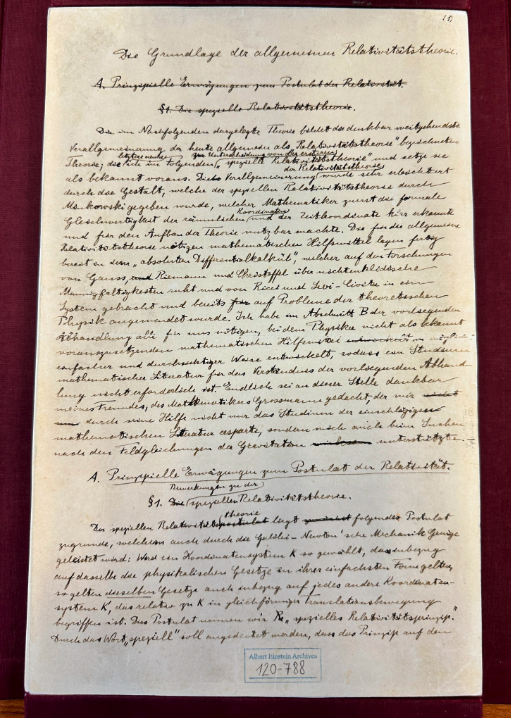 Die Grundlage der allgemeinen Relativitätstheorie.
A. Prinzipielle Erwägungen zum Postulat der Relativität.
§1. Die spezielle Relativitätstheorie.
Die im Nachfolgenden dargelegte Theorie bildet die denkbar weitgehendste
Verallgemeinerung der heute allgemein als „Relativitätstheorie" bezeichneten
letztere nenne zur Unterscheidung von der ersteren
Theorie; die ich im folgenden „spezielle Relativitätstheorie" und setze sie
der Relativitätstheorie
als bekannt voraus. Die Verallgemeinerung wurde sehr erleichtert
durch die Gestalt, welche der speziellen Relativitätstheorie durch
Minkowski gegeben wurde, welcher Mathematiker zuerst die formale
Koordinaten
Gleichwertigkeit der räumlichen und der Zeitkoordinate klar erkannte
und für den Aufbau der Theorie nutzbar machte. Die für die allgemeine
Relativitätstheorie nötigen mathematischen Hilfsmittel lagen fertig
bereit in dem „absoluten Differentialkalkül", welcher auf den Forschungen
von Gauss, und Riemann und Christoffel über nichteuklidische
Mannigfaltigkeiten ruht und von Ricci und Levi-Civita in ein
System gebracht und bereits auf Probleme der theoretischen
Physik angewendet wurde. Ich habe im Abschnitt B der vorliegenden
Abhandlung alle für uns nötigen, bei dem Physiker nicht als bekannt
vorauszusetzenden mathematischen Hilfsmittel entwickelt in möglichst
einfacher und durchsichtiger Weise entwickelt, sodass ein Studium
mathematischer Literatur für das Verständnis der vorliegenden Abhand
lung nicht erforderlich ist. Endlich sei an dieser Stelle dankbar
meines Freundes, des Mathematikers Grossmann gedacht, der mir
durch seine Hilfe nicht nur das Studium der einschlägigen
mathematischen Literatur ersparte, sondern mich auch beim Suchen
nach den Feldgleichungen der Gravitation unterstützte.
A. Prinzipielle Erwägungen zum Postulat der Relativität.
Bemerkungen zu der
§1. Die speziellen Relativitätstheorie.
theorie
Der speziellen Relativitätspostulat liegt folgendes Postulat
zugrunde, welchem auch durch die Galilei-Newton'sche Mechanik Genüge
geleistet wird: Wird ein Koordinatensystem K so gewählt, dass inbezug
auf dasselbe die physikalischen Gesetze in ihrer einfachsten Form gelten,
so gelten dieselben Gesetze auch inbezug auf jedes andere Koordinaten-
system K', das relativ zu K in gleichförmiger Translationsbewegung
begriffen ist. Dies Postulat nennen wir „spezielles Relativitätsprinzip."
Durch das Wort „speziell" soll angedeutet werden, dass das Prinzip auf den
Albert Einstein Archives
120-788